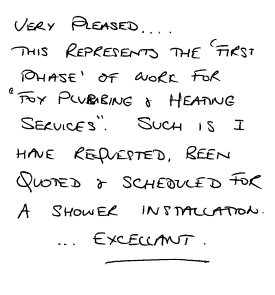 VERY PLEASED....
THIS REPRESENTS THE 'FIRST
PHASE' OF WORK FOR
"FOX PLUBIBING & HEATING
SERVICES". SUCH IS I
HAVE REQUESTED, BEEN
QUOTED & SCHEDULED FOR
A SHOWER INSTALLATION.
... EXCELLANT.